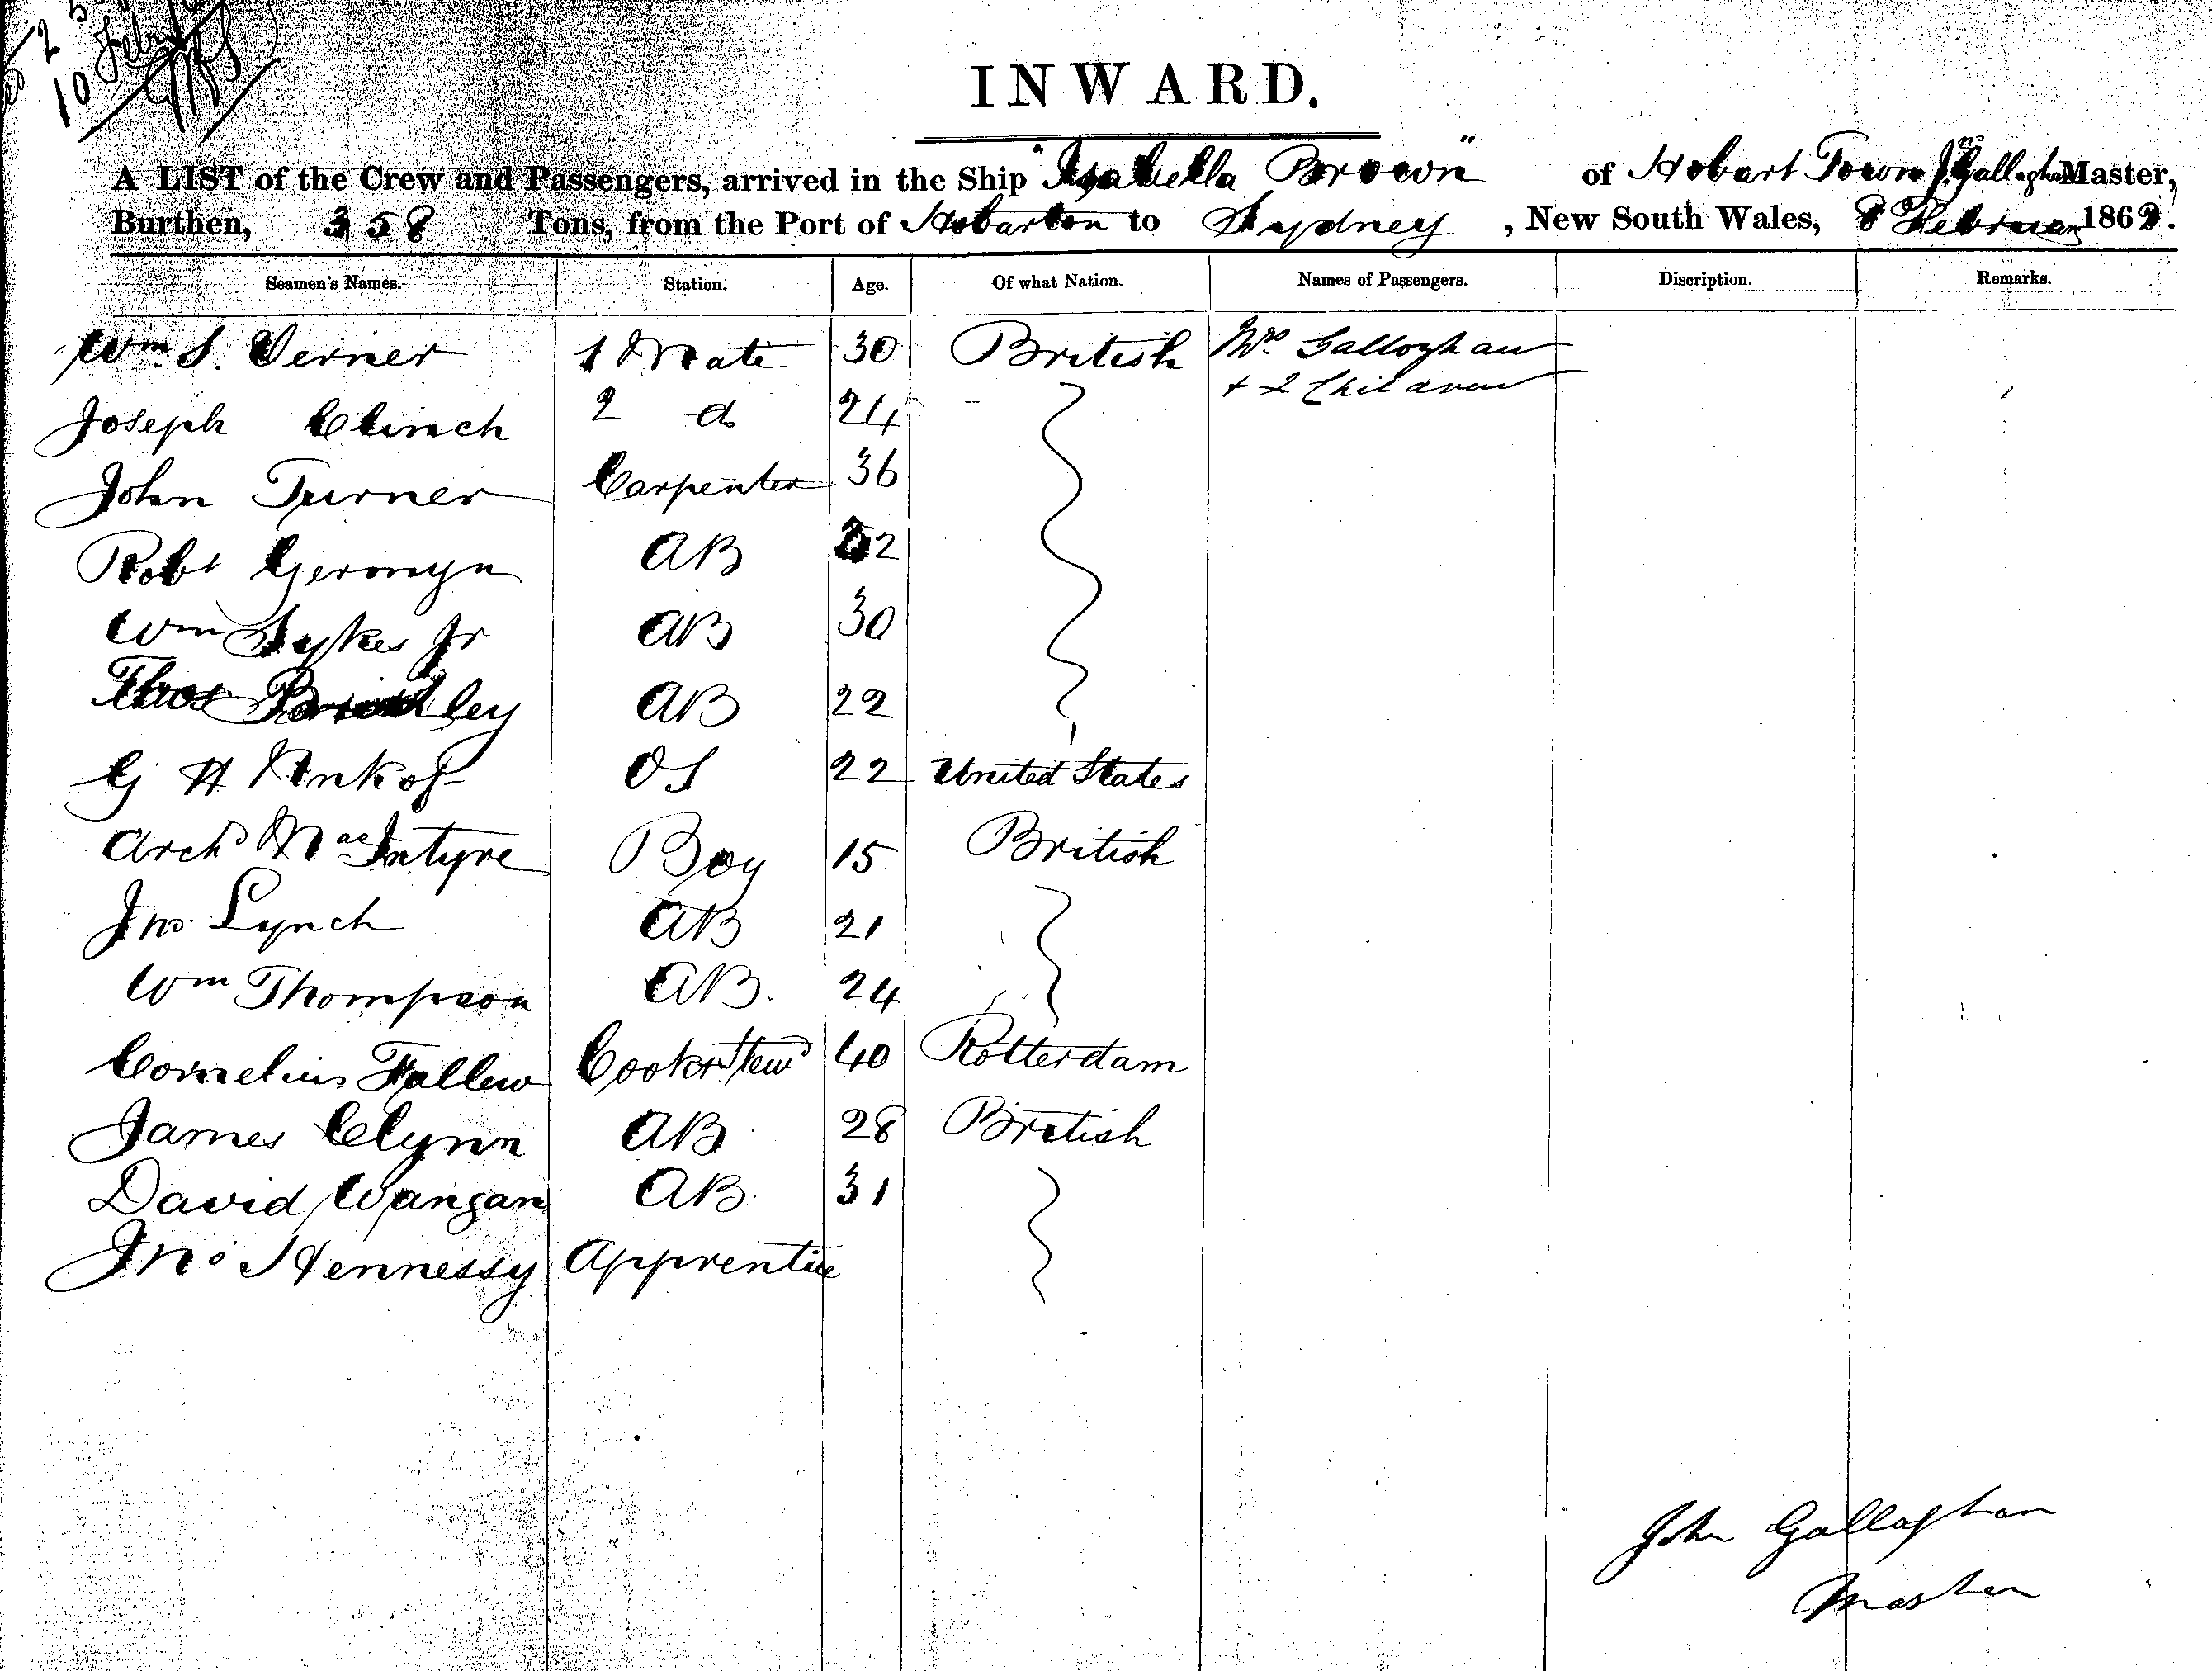 10 Feby
INWARD.
A LIST of the Crew and Passengers, arrived in the Ship "Isabella Brown" of Hobart Town Jno Gallaghan Master,
Burthen, 358 Tons, from the Port of Hobarton to Sydney, New South Wales, 8 February 1862.
Seamen's Names. Station. Age. Of what Nation. Names of Passengers. Discription. Remarks.
Wm S. Verner 1 Mate 30 British Mrs Gallaghan
+ 2 Children
Joseph Clinch 2 do 24
John Turner Carpenter 36
Robt Germyn AB 22
Wm Sykes Jr AB 30
Thos AB 22
G H OS 22 United States
Archd MacIntyre Boy 15 British
Jno Lynch AB 21
Wm Thompson AB. 24
Cornelius Fallew Cook & Stewd 40 Rotterdam
James Clynn AB 28 British
David Wangan AB. 31
Jno Hennessy Apprentice
John Gallaghan
Master